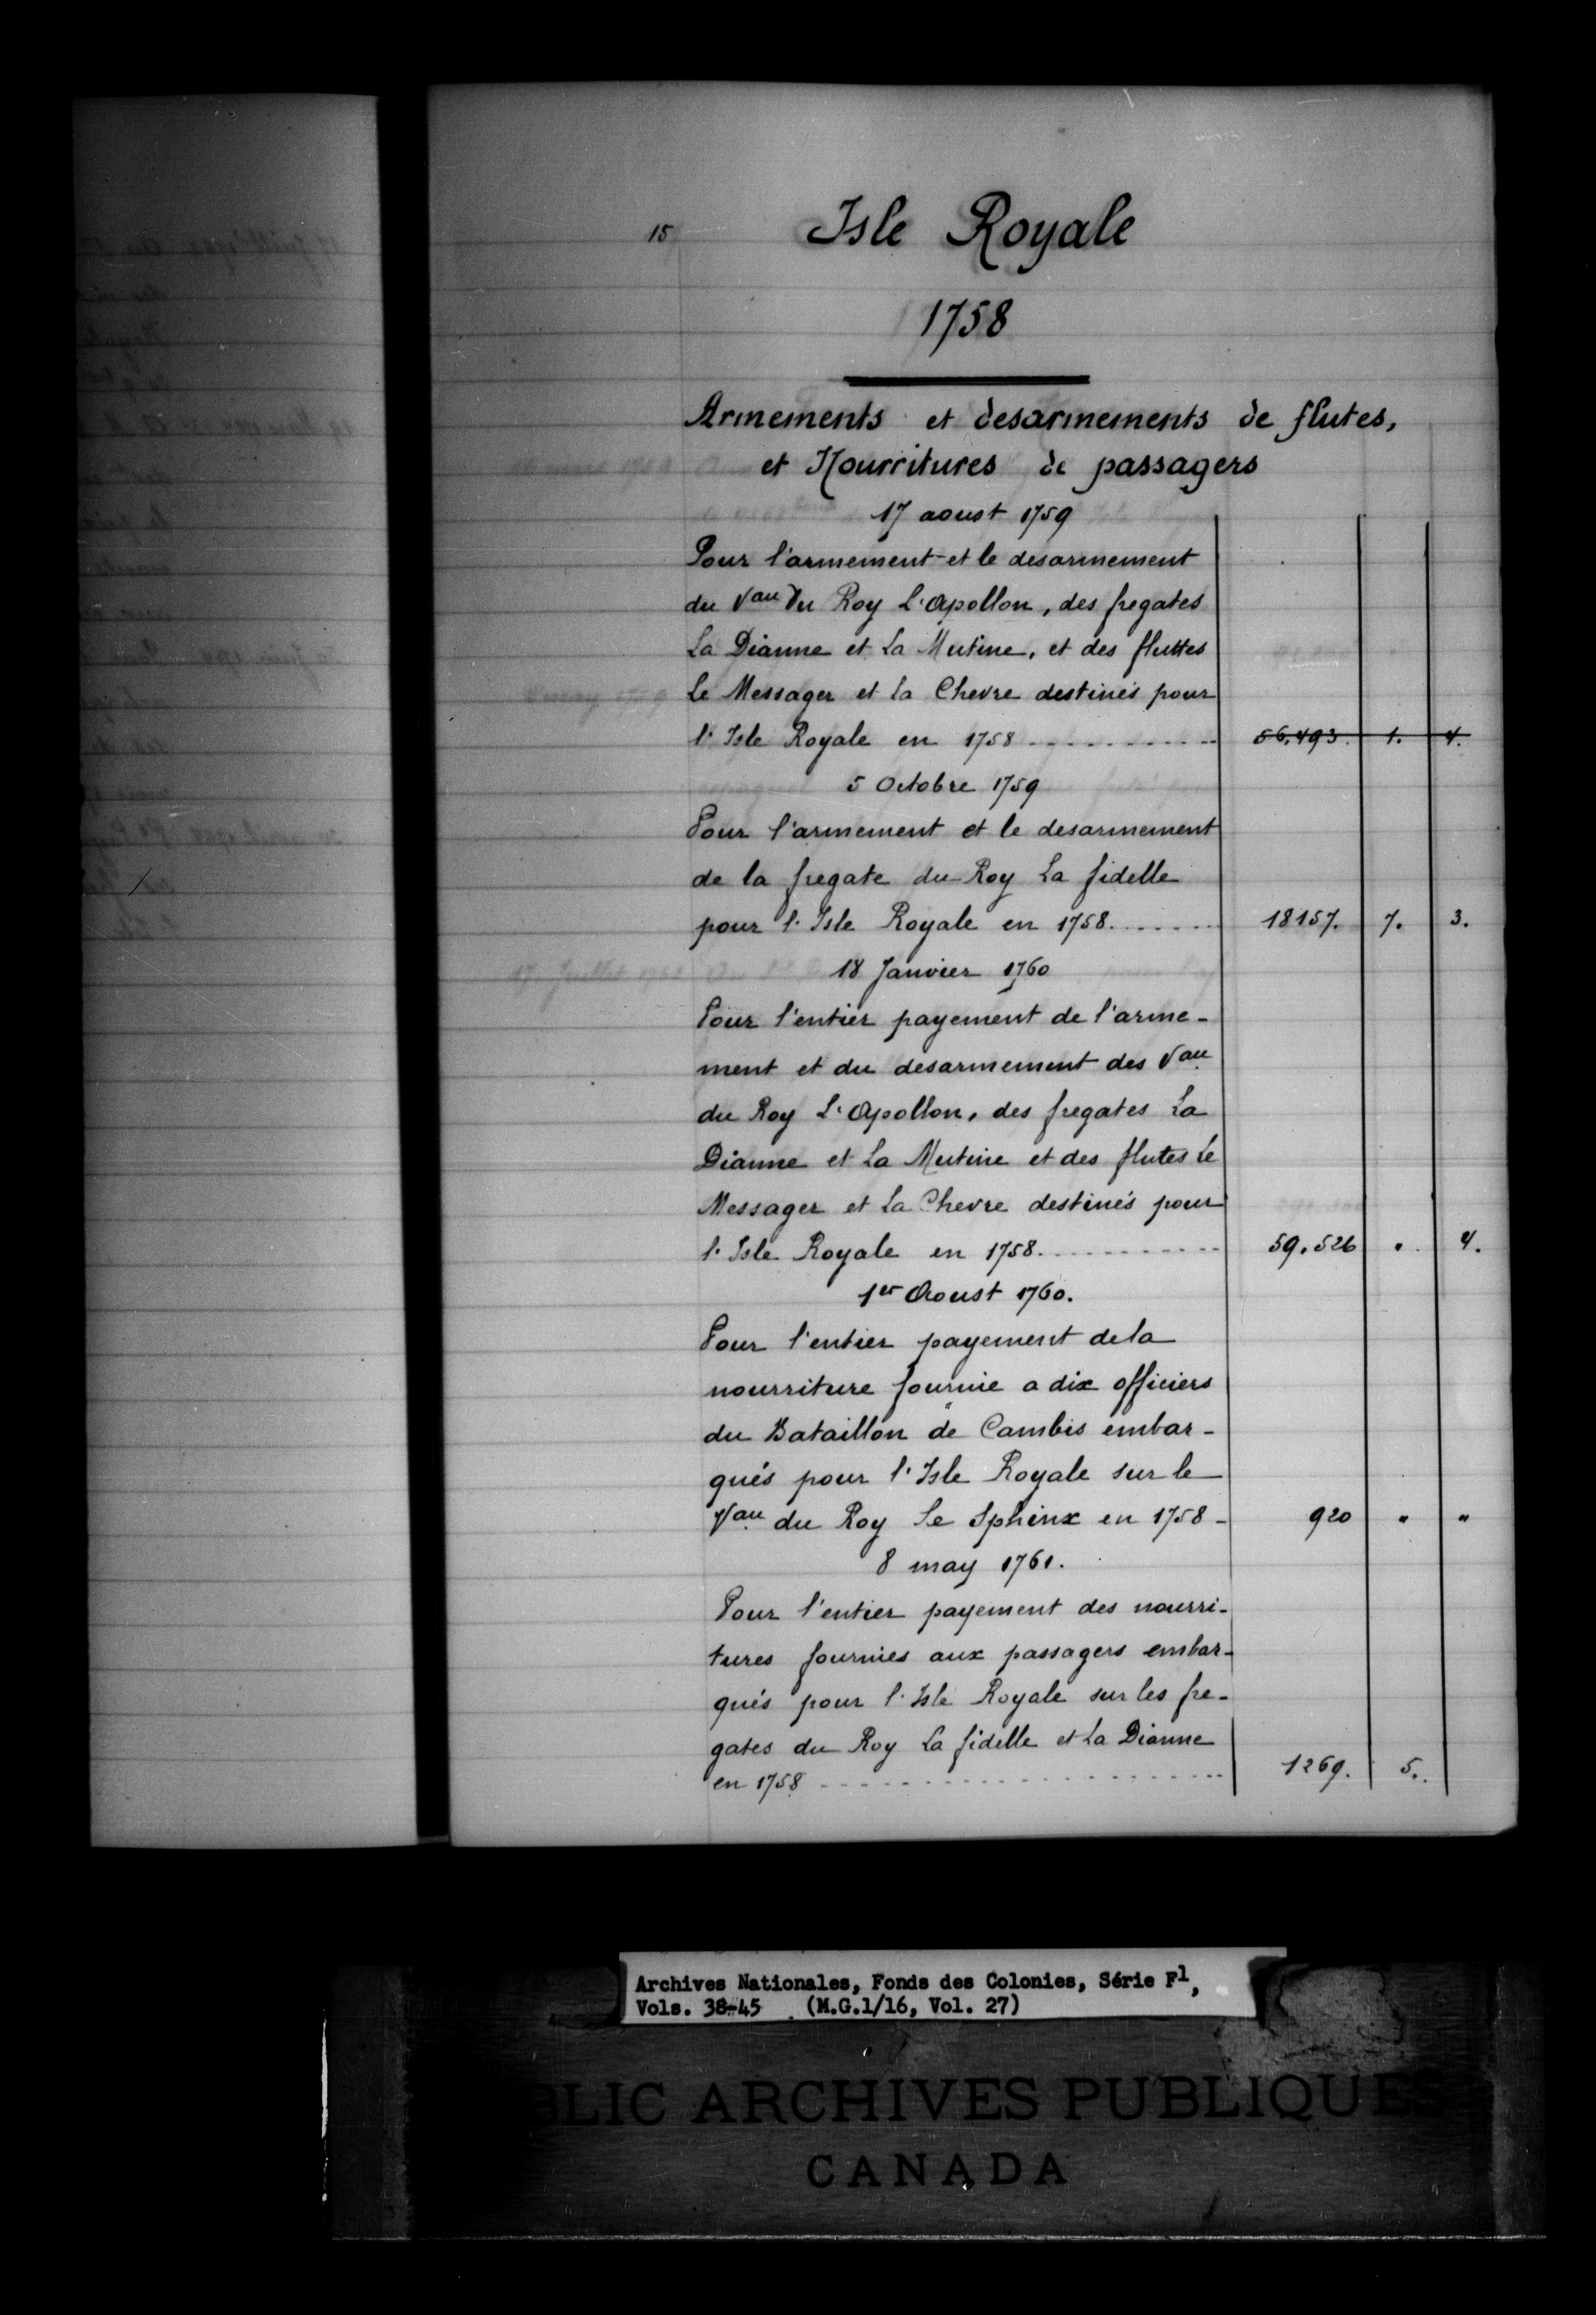 15
Isle Royale
1758
Armements et desarmements de flutes,
et Nourritures de passagers
17 aoust 1759
Pour l'armement et le desarmement
du Vau Du Roy L'Apollon, des fregates
La Dianne et La Mutine, et des fluttes
Le Messager et la Chevre destinés pour
l'Isle Royale en 1758 - - - - - - - - - - - 56,493. 1. 4.
5 Octobre 1759
Pour l'armement et le desarmement
de la fregate du Roy La fidelle
pour l'Isle Royale en 1758. - - - - - - 18157. 7. 3.
18 Janvier 1760
Pour l'entier payement de l'arme-
ment et du desarmement des Vau
du Roy L'Apollon, des fregates La
Dianne et La Mutine et des flutes Le
Messager et La Chevre destinés pour
l'Isle Royale en 1758. - - - - - - - - - - - 59.526 " 4.
1er Aoust 1760.
Pour l'entier payement de la
nourriture fournie a dix officiers
du Bataillon "de Cambis embar-
qués pour l'Isle Royale sur le
Vau du Roy Le Sphinx en 1758 - 920 " "
8 may 1761.
Pour l'entier payement des nourri-
tures fournies aux passagers embar-
qués pour l'Isle Royale sur les fre-
gates du Roy La fidelle et La Dianne
en 1758 - - - - - - - - - - - - - - - - - - - 1269. 5.
Archives Nationales, Fonds des Colonies, Série F1,
Vols. 38-45 (M.G.1/16, Vol. 27)
BLIC ARCHIVES PUBLIQUES
CANADA